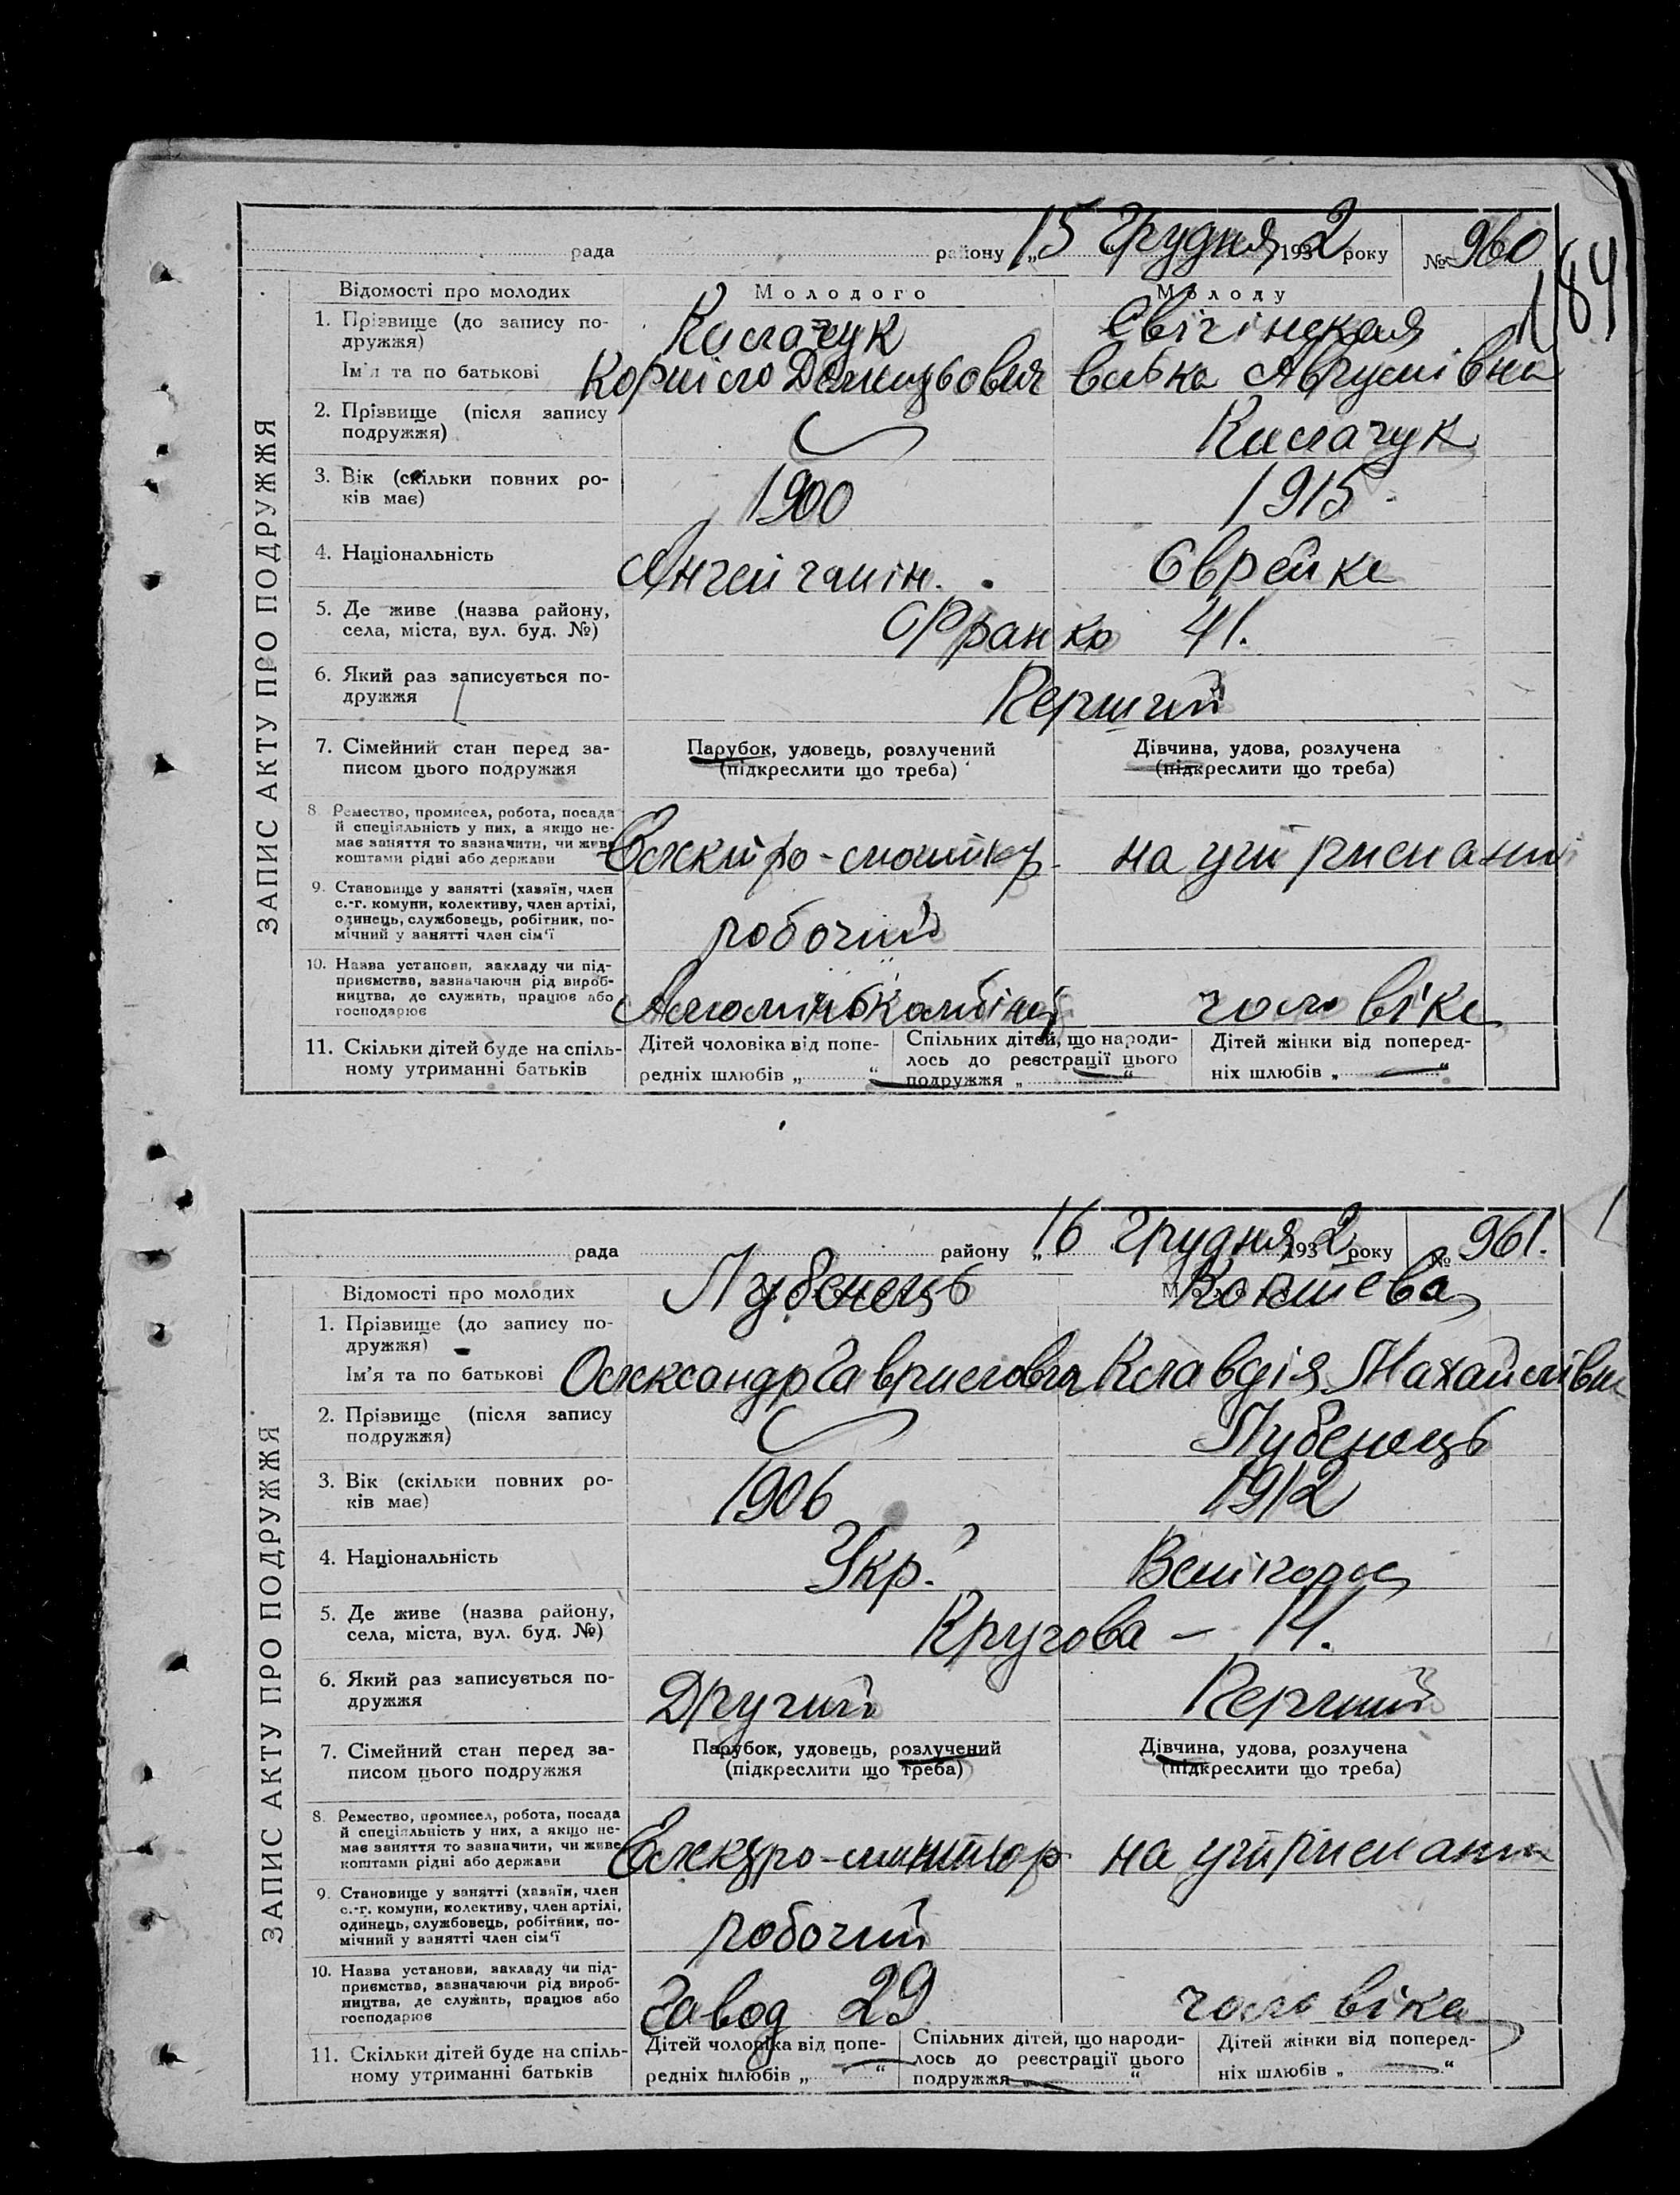 рада району „15 Грудня 1932 року № 960
184
Відомості про молодих Молодого Молоду
1. Прізвище (до запису по-
дружжя)
Ім'я та по батькові
2. Прізвище (після запису
подружжя)
3. Вік (скільки повних ро- 1900 1915
ків має)
4. Національність Єврейка
5. Де живе (назва району, Франка 41.
села, міста, вул. буд. №)
6. Який раз записується по- Перший
дружжя
7. Сімейний стан перед за- Парубок, удовець, розлучений Дівчина, удова, розлучена
писом цього подружжя (підкреслити що треба) (підкреслити що треба)
8. Ремество, промисел, робота, посада
й спеціяльність у них, а якщо не-
має заняття то зазначити, чи живе на утриманні
коштами рідні або держави
9. Становище у занятті (хазяїн, член
с.-г. комуни, колективу, член артілі,
одинець, службовець, робітник, по- робочий
мічний у занятті член сім'ї
10. Назва установи, закладу чи під-
приємства, зазначаючи рід вироб-
ництва, де служить, працює або чоловіка
господарює
11. Скільки дітей буде на спіль- Дітей чоловіка від попе- Спільних дітей, що народи- Дітей жінки від поперед-
ному утриманні батьків редніх шлюбів „ “ лось до реєстрації цього ніх шлюбів „ “
подружжя „ “
ЗАПИС АКТУ ПРО ПОДРУЖЖЯ
рада району „16 Грудня 1932 року № 961.
Відомості про молодих Лубенець
1. Прізвище (до запису по-
дружжя)
Ім'я та по батькові Олександр Гаврилович Клавдія Михайлівна
2. Прізвище (після запису Лубенець
подружжя)
3. Вік (скільки повних ро- 1906 1912
ків має)
4. Національність Укр.
5. Де живе (назва району,
села, міста, вул. буд. №)
6. Який раз записується по- Другий Перший
дружжя
7. Сімейний стан перед за- Парубок, удовець, розлучений Дівчина, удова, розлучена
писом цього подружжя (підкреслити що треба) (підкреслити що треба)
8. Ремество, промисел, робота, посада
й спеціяльність у них, а якщо не-
має заняття то зазначити, чи живе Електро-монтьор на утриманні
коштами рідні або держави
9. Становище у занятті (хазяїн, член
с.-г. комуни, колективу, член артілі,
одинець, службовець, робітник, по- робочий
мічний у занятті член сім'ї
10. Назва установи, закладу чи під-
приємства, зазначаючи рід вироб-
ництва, де служить, працює або Завод 29 чоловіка
господарює
11. Скільки дітей буде на спіль- Дітей чоловіка від попе- Спільних дітей, що народи- Дітей жінки від поперед-
ному утриманні батьків редніх шлюбів „ “ лось до реєстрації цього ніх шлюбів „ “
подружжя „ “
ЗАПИС АКТУ ПРО ПОДРУЖЖЯ